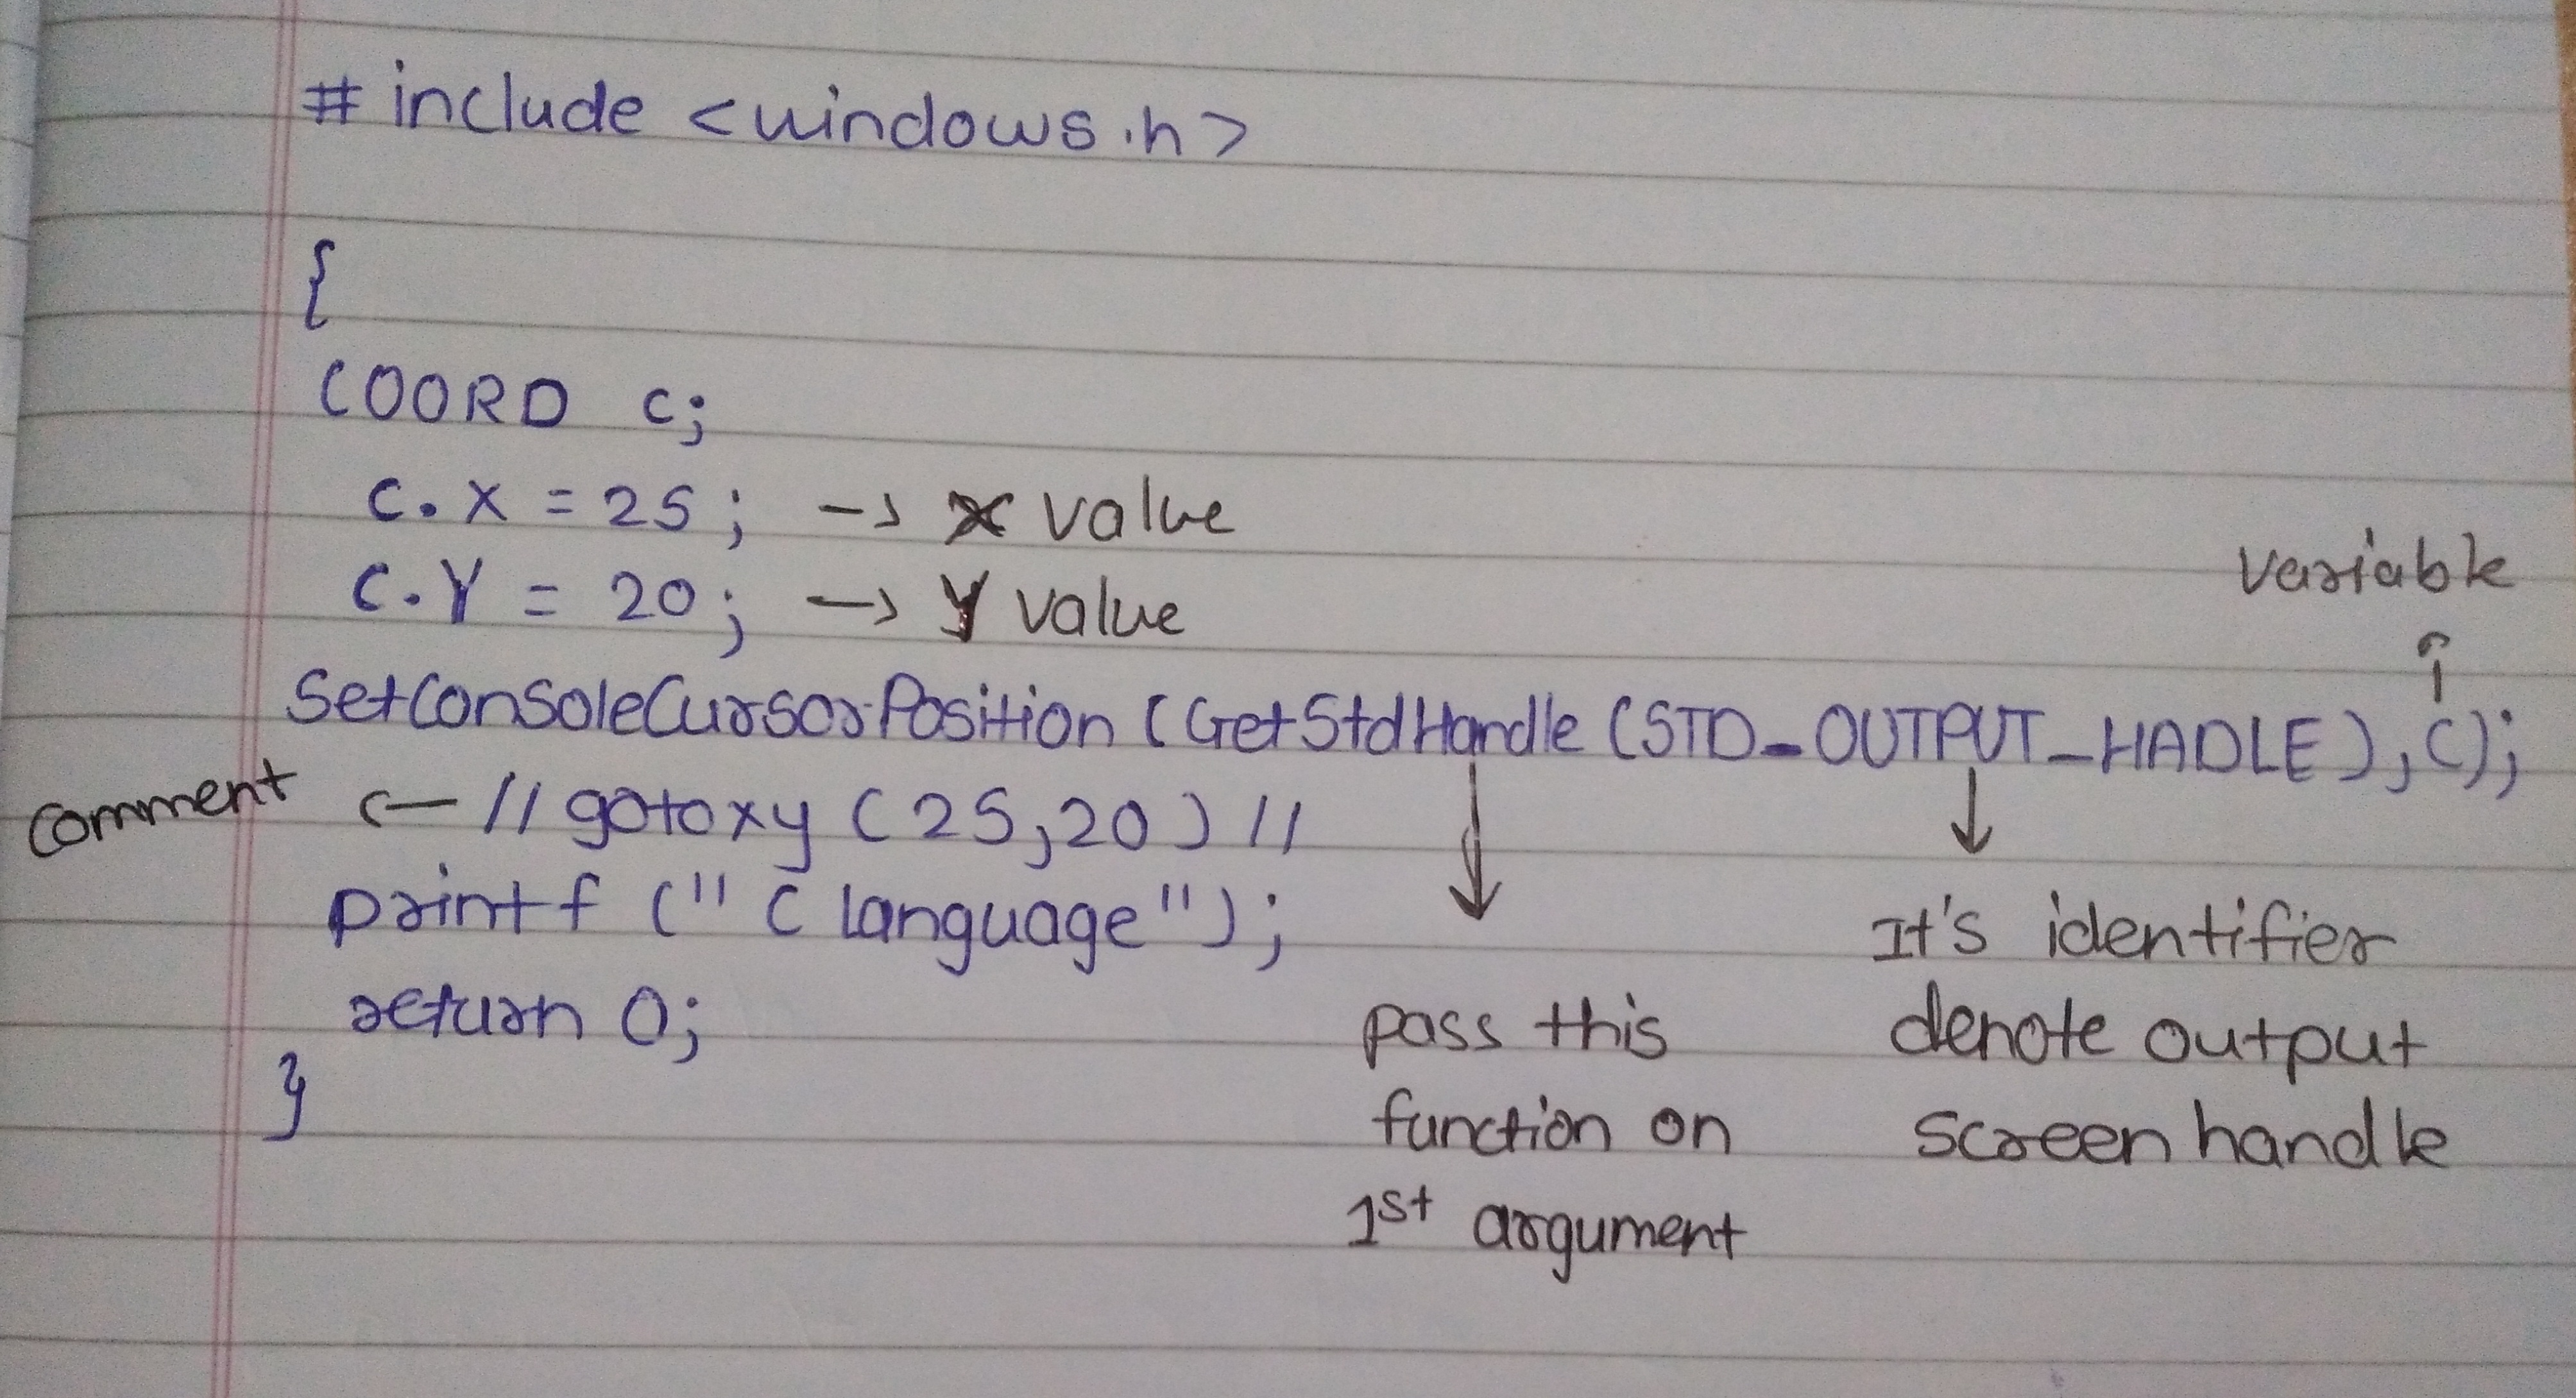 # include <windows.h>
{
COORD c;
c.X = 25; → x value
c.Y = 20; → Y value
variable
SetConsoleCursorPosition (GetStdHandle (STD_OUTPUT_HADLE), c);
comment ← // gotoxy (25,20) //
printf (" C language");
return 0;
}
pass this
function on
1st argument
It's identifier
denote output
screen handle